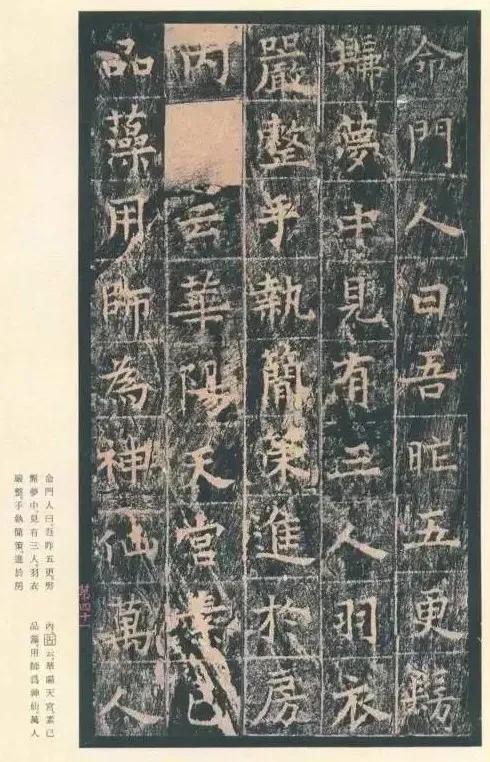 命門人曰吾昨五更髣
髴夢中見有三人羽衣
嚴整手執簡策進於房
內云華陽天宮素已
品藻用師為神仙萬人
第四十一
命門人曰、吾昨五更、髣
髴夢中、見有三人、羽衣
嚴整、手執簡策、進於房
內云、華陽天宮、素已
品藻、用師爲神仙、萬人